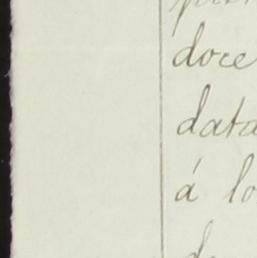 doce
data
á lo
de